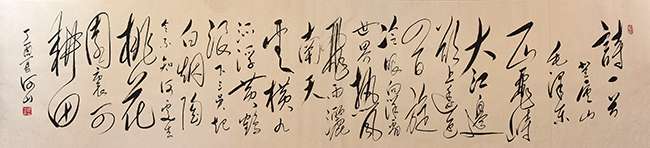 詩一首
登廬山
毛澤东
一山飛峙
大江邊
跃上葱茏
四百旋
冷眼向洋看
世界熱风
吹雨灑
南天
雲横九
派浮黄鹤
浪下三吴起
白烟陶
令不知何處去
桃花
園裏可
耕田
丁酉夏河山